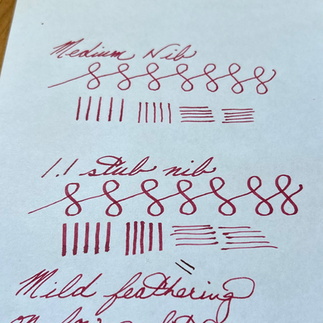 Medium Nib
1.1 stub nib
Mild feathering
on